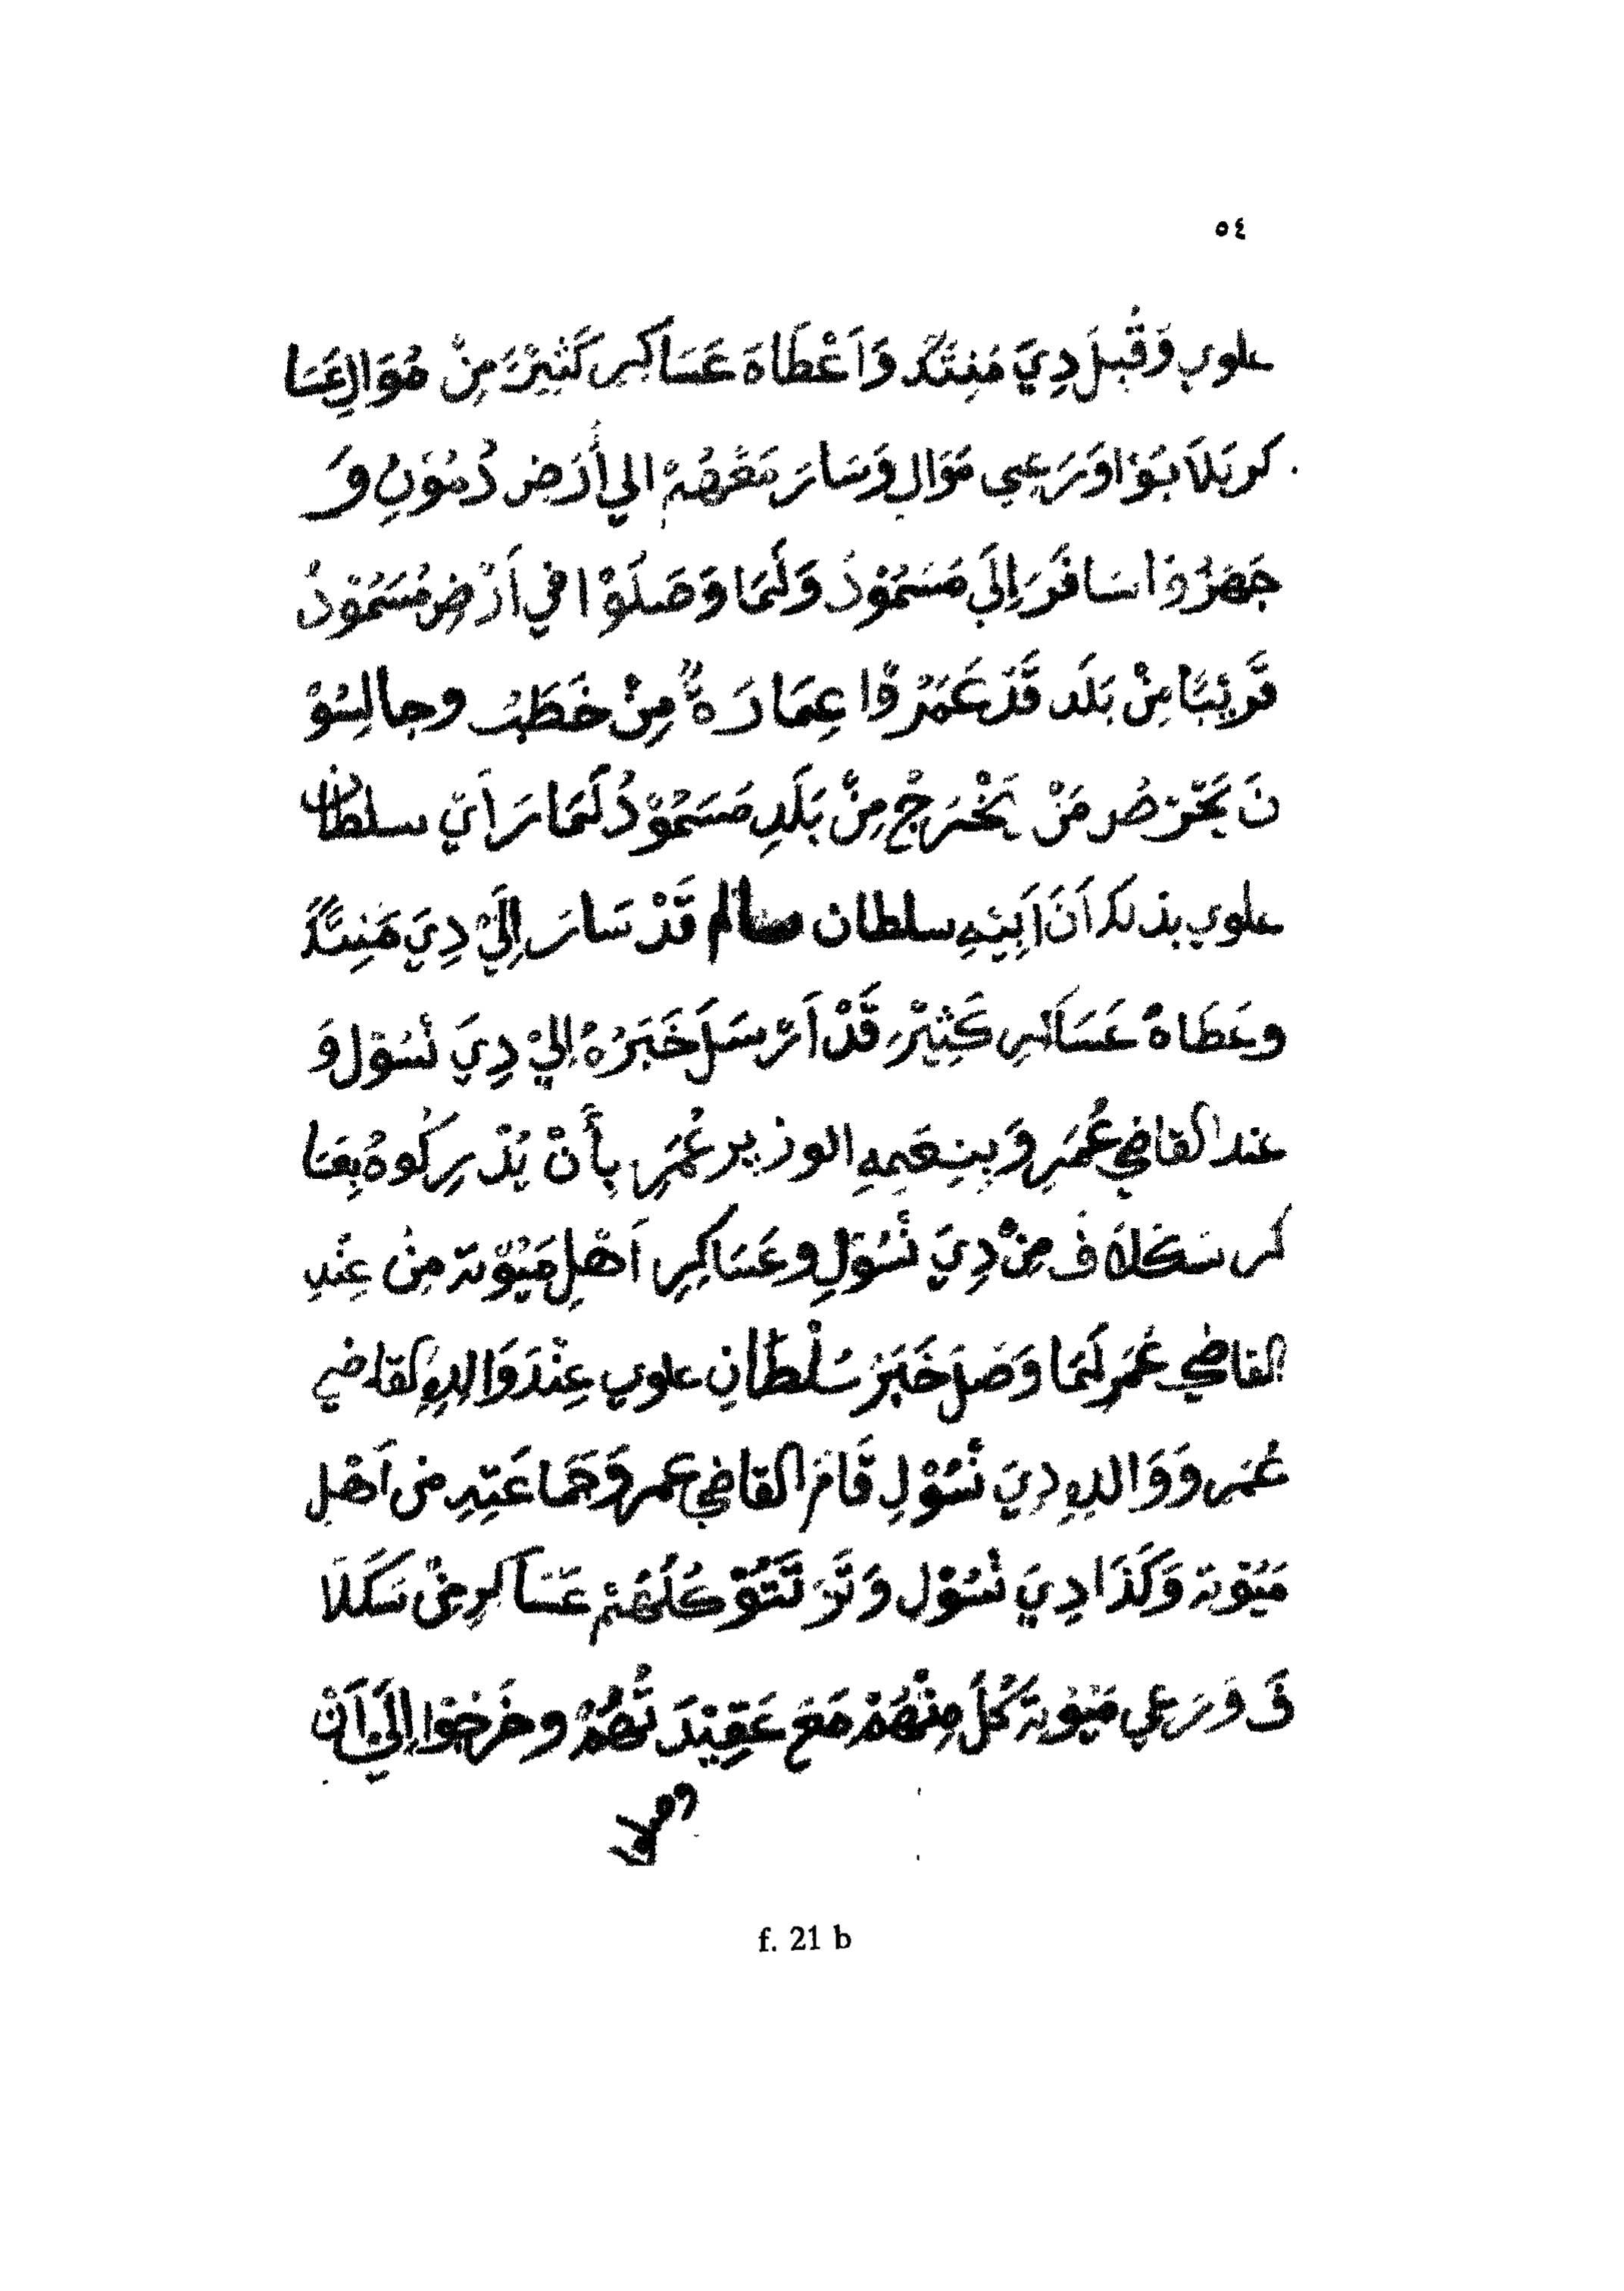 ٥٤
علوي وَقُبِلَ دِيَ مَنِتَدُ وَاَعْطَاهَ عَسَاكِرِ كَثِيْرَ مِنْ مُوَالِ عَسَا
كر بَلاَ بَوَا وَرَعِي مَوَالِ وَسَارَ مَعْهُمْ الي أَرَضِ دُمُوَنِ وَ
جَهَرُوَا سَافَرَ اِلَي مَسَمُوْدُ وَلَمَا وَصَلَوْا في اَرْضِ مُسَمُوْدُ
قَرِيْبًا مِنْ بَلَد قَدْ عَمَرُوْا عِمَارَةً مِنْ خَطَبُ وجالِسُوْ
نَ يَحْرَصُ مَنْ يَخْرَجْ مِنْ بَلَدِ مَسَمُوْدُ لَمَا رَاَيَ سلطان
علوي بذلك اَنَ اَبِيْهِ سلطان سالم قَدْ سَارَ اِلَيْ دِيَ مَنِتَدُ
وعَطَاهُ عَسَاكِرِ كَثِيْرِ قَدْ اَرْسَلَ خَبَرُهُ اِليْ دِيَ نْسُوْلِ وَ
عند القاضي عُمَرِ وَبِنِ عَمِهِ الوزير عُمَرِ بِأَنْ يُدْرِكُوهُ بِعَسَا
كر سَكَلاَف مِنْ دِيَ نْسُوْلِ وعَسَاكِرِ اَهْلِ مَيُوْتَة مِنْ عِنْدِ
القاضي عُمَرِ لَمَا وَصَلَ خَبَرُ سُلْطَانِ علوي عِنْدَ وَالِدِهِ القاضي
عُمَرِ وَوَالدِهِ دِيَ نْسُوْلِ قَامَ القاضي عمر وَجَمَاعَتِهِ من اَهْلِ
مَيُوْتة وَكَذَا دِيَ نْسُوْل وَتَرَتَّتُوْ كُلَهُمْ عَسَاكرِ مِنْ سَكَلَا
فَ وَرَعِي مَيُوْتَة كُلَ مِنْهُمْ مَعَ عَقِيْدَتُهُمْ وخَرَجُوا اِلَيْ اَنْ
f. 21 b